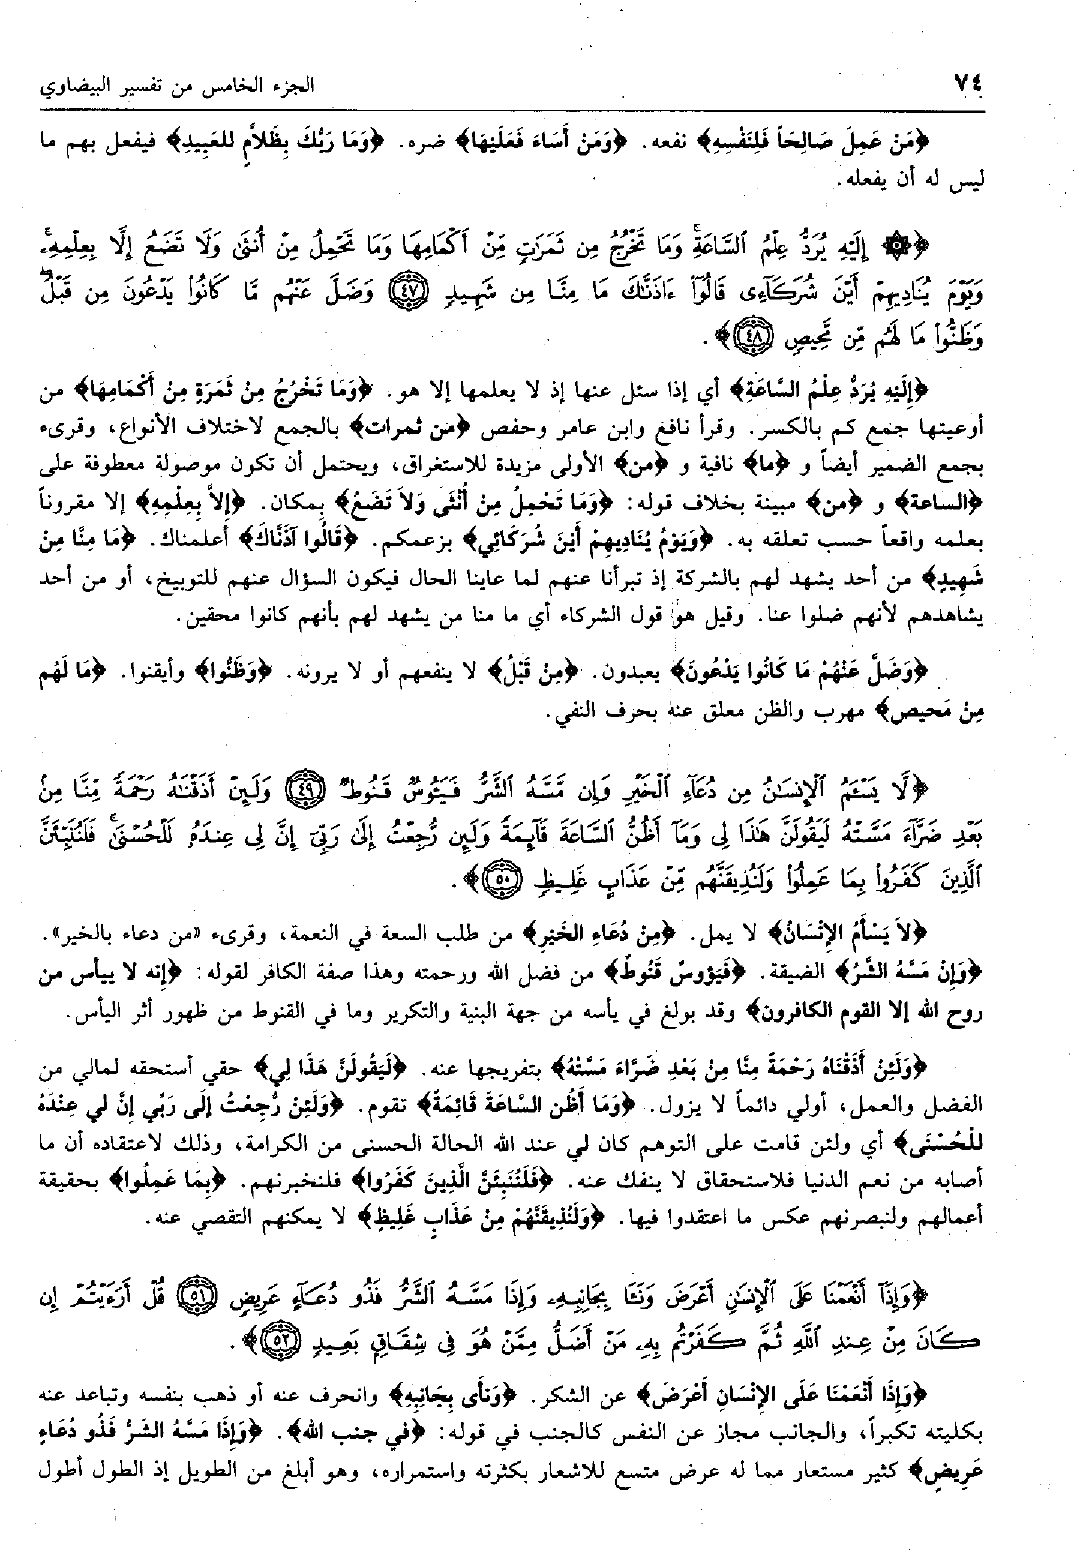 ٧٤
الجزء الخامس من تفسير البيضاوي
﴿مَنْ عَمِلَ صَالِحَاً فَلِنَفْسِهِ﴾ نفعه. ﴿وَمَنْ أَسَاءَ فَعَلَيْهَا﴾ ضره. ﴿وَمَا رَبُّكَ بِظَلاَّمٍ للعَبِيدِ﴾ فيفعل بهم ما
ليس له أن يفعله.
﴿۞ إِلَيْهِ يُرَدُّ عِلْمُ ٱلسَّاعَةِۚ وَمَا تَخْرُجُ مِن ثَمَرَٰتٍ مِّنْ أَكْمَامِهَا وَمَا تَحْمِلُ مِنْ أُنثَىٰ وَلَا تَضَعُ إِلَّا بِعِلْمِهِۦۚ
وَيَوْمَ يُنَادِيهِمْ أَيْنَ شُرَكَآءِى قَالُوٓا۟ ءَاذَنَّٰكَ مَا مِنَّا مِن شَهِيدٍ ﴿٤٧﴾ وَضَلَّ عَنْهُم مَّا كَانُوا۟ يَدْعُونَ مِن قَبْلُۖ
وَظَنُّوا۟ مَا لَهُم مِّن مَّحِيصٍ ﴿٤٨﴾﴾.
﴿إِلَيْهِ يُرَدُّ عِلْمُ السَّاعَةِ﴾ أي إذا سئل عنها إذ لا يعلمها إلا هو. ﴿وَمَا تَخْرُجُ مِنْ ثَمَرَةٍ مِنْ أَكْمَامِهَا﴾ من
أوعيتها جمع كم بالكسر. وقرأ نافع وابن عامر وحفص ﴿من ثمرات﴾ بالجمع لاختلاف الأنواع، وقرىء
بجمع الضمير أيضاً و ﴿ما﴾ نافية و ﴿من﴾ الأولى مزيدة للاستغراق، ويحتمل أن تكون موصولة معطوفة على
﴿الساعة﴾ و ﴿من﴾ مبينة بخلاف قوله: ﴿وَمَا تَحْمِلُ مِنْ أُنْثَى وَلاَ تَضَعُ﴾ بمكان. ﴿إِلاَّ بِعِلْمِهِ﴾ إلا مقروناً
بعلمه واقعاً حسب تعلقه به. ﴿وَيَوْمَ يُنَادِيهِمْ أَيْنَ شُرَكَائِي﴾ بزعمكم. ﴿قَالُوا آذَنَّاكَ﴾ أعلمناك. ﴿مَا مِنَّا مِنْ
شَهِيدٍ﴾ من أحد يشهد لهم بالشركة إذ تبرأنا عنهم لما عاينا الحال فيكون السؤال عنهم للتوبيخ، أو من أحد
يشاهدهم لأنهم ضلوا عنا. وقيل هو قول الشركاء أي ما منا من يشهد لهم بأنهم كانوا محقين.
﴿وَضَلَّ عَنْهُمْ مَا كَانُوا يَدْعُونَ﴾ يعبدون. ﴿مِنْ قَبْلُ﴾ لا ينفعهم أو لا يرونه. ﴿وَظَنُّوا﴾ وأيقنوا. ﴿مَا لَهُم
مِنْ مَحيص﴾ مهرب والظن معلق عنه بحرف النفي.
﴿لَّا يَسْـَٔمُ ٱلْإِنسَٰنُ مِن دُعَآءِ ٱلْخَيْرِ وَإِن مَّسَّهُ ٱلشَّرُّ فَيَـُٔوسٌ قَنُوطٌ ﴿٤٩﴾ وَلَئِنْ أَذَقْنَٰهُ رَحْمَةً مِّنَّا مِنۢ
بَعْدِ ضَرَّآءَ مَسَّتْهُ لَيَقُولَنَّ هَٰذَا لِى وَمَآ أَظُنُّ ٱلسَّاعَةَ قَآئِمَةً وَلَئِن رُّجِعْتُ إِلَىٰ رَبِّىٓ إِنَّ لِى عِندَهُۥ لَلْحُسْنَىٰۚ فَلَنُنَبِّئَنَّ
ٱلَّذِينَ كَفَرُوا۟ بِمَا عَمِلُوا۟ وَلَنُذِيقَنَّهُم مِّنْ عَذَابٍ غَلِيظٍ ﴿٥٠﴾﴾.
﴿لاَ يَسْأَمُ الإِنْسَانُ﴾ لا يمل. ﴿مِنْ دُعَاءِ الخَيْرِ﴾ من طلب السعة في النعمة، وقرىء «من دعاء بالخير».
﴿وَإِنْ مَسَّهُ الشَّرُ﴾ الضيقة. ﴿فَيَؤُوسٌ قَنُوطٌ﴾ من فضل الله ورحمته وهذا صفة الكافر لقوله: ﴿إنه لا ييأس من
روح الله إلا القوم الكافرون﴾ وقد بولغ في يأسه من جهة البنية والتكرير وما في القنوط من ظهور أثر اليأس.
﴿وَلَئِنْ أَذَقْنَاهُ رَحْمَةً مِنَّا مِنْ بَعْدِ ضَرَّاءَ مَسَّتْهُ﴾ بتفريجها عنه. ﴿لَيَقُولَنَّ هَذَا لِي﴾ حقي أستحقه لمالي من
الفضل والعمل، أولي دائماً لا يزول. ﴿وَمَا أَظُن السَّاعَةَ قَائِمَةً﴾ تقوم. ﴿وَلَئِنْ رُجِعتُ إِلَى رَبِّي إِنَّ لي عِنْدَهُ
للْحُسْنَى﴾ أي ولئن قامت على التوهم كان لي عند الله الحالة الحسنى من الكرامة، وذلك لاعتقاده أن ما
أصابه من نعم الدنيا فلاستحقاق لا ينفك عنه. ﴿فَلَنُنَبِئَنَّ الَّذِينَ كَفَرُوا﴾ فلنخبرنهم. ﴿بِمَا عَمِلُوا﴾ بحقيقة
أعمالهم ولنبصرنهم عكس ما اعتقدوا فيها. ﴿وَلَنُذِيقَنَّهُمْ مِنْ عَذَابٍ غَلِيظٍ﴾ لا يمكنهم التقصي عنه.
﴿وَإِذَآ أَنْعَمْنَا عَلَى ٱلْإِنسَٰنِ أَعْرَضَ وَنَـَٔا بِجَانِبِهِۦ وَإِذَا مَسَّهُ ٱلشَّرُّ فَذُو دُعَآءٍ عَرِيضٍ ﴿٥١﴾ قُلْ أَرَءَيْتُمْ إِن
كَانَ مِنْ عِندِ ٱللَّهِ ثُمَّ كَفَرْتُم بِهِۦ مَنْ أَضَلُّ مِمَّنْ هُوَ فِى شِقَاقٍۭ بَعِيدٍ ﴿٥٢﴾﴾.
﴿وَإِذَا أَنْعَمْنَا عَلَى الإِنْسَانِ أَعْرَضَ﴾ عن الشكر. ﴿وَنَأى بِجَانِبِهِ﴾ وانحرف عنه أو ذهب بنفسه وتباعد عنه
بكليته تكبراً، والجانب مجاز عن النفس كالجنب في قوله: ﴿في جنب الله﴾. ﴿وَإِذَا مَسَّهُ الشَرُّ فَذُو دُعَاءٍ
عَرِيضٍ﴾ كثير مستعار مما له عرض متسع للاشعار بكثرته واستمراره، وهو أبلغ من الطويل إذ الطول أطول